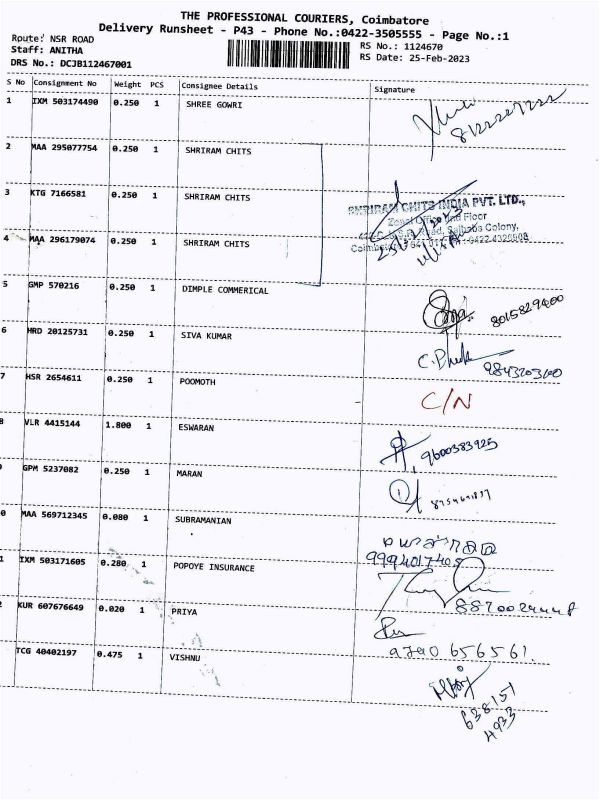 THE PROFESSIONAL COURIERS, Coimbatore
Delivery Runsheet - P43 - Phone No.:0422-3505555 - Page No.:1
Route: NSR ROAD
Staff: ANITHA
DRS No.: DCJB112467001
RS No.: 1124670
RS Date: 25-Feb-2023
S No Consignment No Weight PCS Consignee Details Signature
1 IXM 503174490 0.250 1 SHREE GOWRI
2 MAA 295077754 0.250 1 SHRIRAM CHITS
3 KTG 7166581 0.250 1 SHRIRAM CHITS
SHRIRAM CHITS INDIA PVT. LTD.,
4 MAA 296179074 0.250 1 SHRIRAM CHITS
5 GMP 570216 0.250 1 DIMPLE COMMERICAL
8015829400
6 HRD 20125731 0.250 1 SIVA KUMAR
7 HSR 2654611 0.250 1 POOMOTH C/N
8 VLR 4415144 1.800 1 ESWARAN 9600383925
GPM 5237082 0.250 1 MARAN
0 MAA 569712345 0.080 1 SUBRAMANIAN
9994017405
1 IXM 503171605 0.280 1 POPOYE INSURANCE
2 KUR 607676649 0.020 1 PRIYA
9790 656561.
TCG 40402197 0.475 1 VISHNU
638151
4933